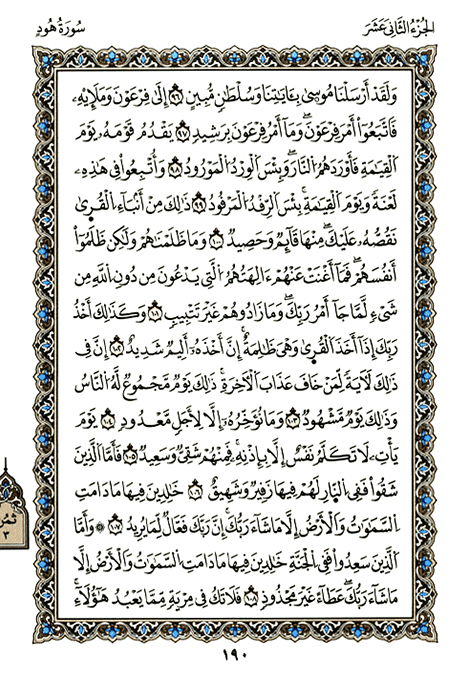 الجُزْءُ الثَّانِي عَشَرَ
سُورَةُ هُودٍ
وَلَقَدْ أَرْسَلْنَا مُوسَىٰ بِـَٔايَٰتِنَا وَسُلْطَٰنٍ مُّبِينٍ ٩٦ إِلَىٰ فِرْعَوْنَ وَمَلَإِيْهِۦ
فَاتَّبَعُوٓا۟ أَمْرَ فِرْعَوْنَ وَمَآ أَمْرُ فِرْعَوْنَ بِرَشِيدٍ ٩٧ يَقْدُمُ قَوْمَهُۥ يَوْمَ
الْقِيَٰمَةِ فَأَوْرَدَهُمُ النَّارَ وَبِئْسَ الْوِرْدُ الْمَوْرُودُ ٩٨ وَأُتْبِعُوا۟ فِى هَٰذِهِۦ
لَعْنَةً وَيَوْمَ الْقِيَٰمَةِ بِئْسَ الرِّفْدُ الْمَرْفُودُ ٩٩ ذَٰلِكَ مِنْ أَنۢبَآءِ الْقُرَىٰ
نَقُصُّهُۥ عَلَيْكَ مِنْهَا قَآئِمٌ وَحَصِيدٌ ١٠٠ وَمَا ظَلَمْنَٰهُمْ وَلَٰكِن ظَلَمُوٓا۟
أَنفُسَهُمْ فَمَآ أَغْنَتْ عَنْهُمْ ءَالِهَتُهُمُ الَّتِى يَدْعُونَ مِن دُونِ اللَّهِ مِن
شَىْءٍ لَّمَّا جَآءَ امْرُ رَبِّكَ وَمَا زَادُوهُمْ غَيْرَ تَتْبِيبٍ ١٠١ وَكَذَٰلِكَ أَخْذُ
رَبِّكَ إِذَآ أَخَذَ الْقُرَىٰ وَهْىَ ظَٰلِمَةٌ إِنَّ أَخْذَهُۥٓ أَلِيمٌ شَدِيدٌ ١٠٢ إِنَّ فِى
ذَٰلِكَ لَـَٔايَةً لِّمَنْ خَافَ عَذَابَ الْـَٔاخِرَةِ ذَٰلِكَ يَوْمٌ مَّجْمُوعٌ لَّهُ النَّاسُ
وَذَٰلِكَ يَوْمٌ مَّشْهُودٌ ١٠٣ وَمَا نُؤَخِّرُهُۥٓ إِلَّا لِأَجَلٍ مَّعْدُودٍ ١٠٤ يَوْمَ
يَأْتِۦ لَا تَكَلَّمُ نَفْسٌ إِلَّا بِإِذْنِهِۦ فَمِنْهُمْ شَقِىٌّ وَسَعِيدٌ ١٠٥ فَأَمَّا الَّذِينَ
شَقُوا۟ فَفِى النَّارِ لَهُمْ فِيهَا زَفِيرٌ وَشَهِيقٌ ١٠٦ خَٰلِدِينَ فِيهَا مَا دَامَتِ
السَّمَٰوَٰتُ وَالْأَرْضُ إِلَّا مَا شَآءَ رَبُّكَ إِنَّ رَبَّكَ فَعَّالٌ لِّمَا يُرِيدُ ١٠٧ وَأَمَّا
الَّذِينَ سَعِدُوا۟ فَفِى الْجَنَّةِ خَٰلِدِينَ فِيهَا مَا دَامَتِ السَّمَٰوَٰتُ وَالْأَرْضُ إِلَّا
مَا شَآءَ رَبُّكَ عَطَآءً غَيْرَ مَجْذُوذٍ ١٠٨ فَلَا تَكُ فِى مِرْيَةٍ مِّمَّا يَعْبُدُ هَٰٓؤُلَآءِ
ثمن
٣
١٩٠